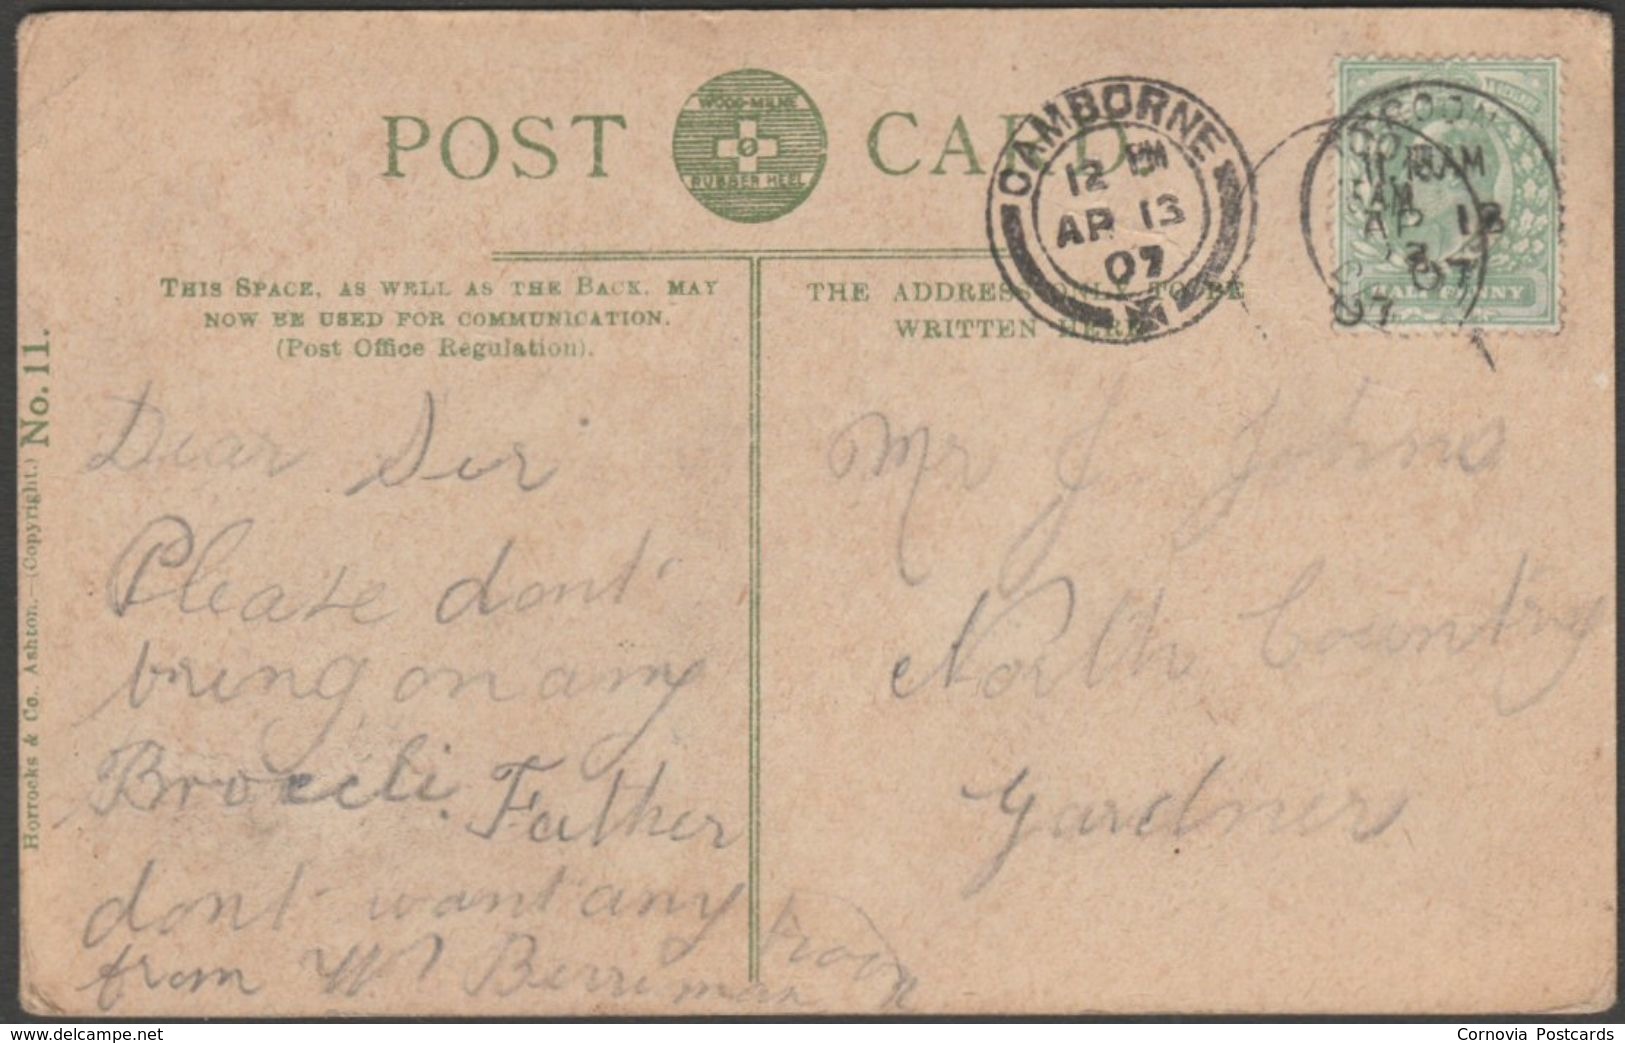 POST CARD
WOOD-MILNE
RUBBER HEEL
CAMBORNE
12 PM
AP 13
07
11.15AM
AP 13
07
HALFPENNY
THIS SPACE, AS WELL AS THE BACK, MAY
NOW BE USED FOR COMMUNICATION.
(Post Office Regulation).
THE ADDRESS ONLY TO BE
WRITTEN HERE
Horrocks & Co. Ashton.—(Copyright.) No. 11.
Dear Sir
Please dont
bring on any
Brocili. Father
dont want any
from W Berriman Troon
Mr J. Johns
North Country
Gardner
Cornovia Postcards